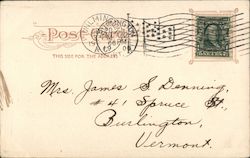 POST CARD
THIS SIDE FOR THE ADDRESS
Mrs. James S. Denning,
#41 Spruce St.,
Burlington,
Vermont.